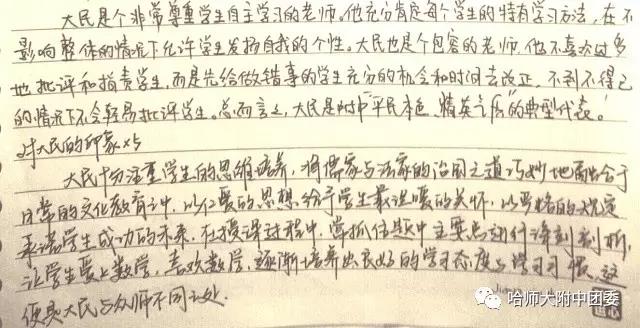 大民是个非常尊重学生自主学习的老师。他充分肯定每个学生的特有学习方法，在不
影响整体的情况下允许学生发扬自我的个性。大民也是个包容的老师，他不喜欢过多
地批评和指责学生，而是先给做错事的学生充分的机会和时间去改正，不到不得已
的情况下不会轻易批评学生。总而言之，大民是附中"平民本色，精英气质"的典型代表！
对大民的印象×5
大民十分注重学生的思维培养，将儒家与法家的治国之道巧妙地融合于
日常的文化教育之中，以仁爱的思想给予学生最温暖的关怀，以严格的规定
承诺学生成功的未来。在授课过程中，掌抓住题中主要点进行深刻剖析，
让学生爱上数学，喜欢数学，逐渐培养出良好的学习态度与学习习惯，这
便是大民与众师不同之处。
哈师大附中团委